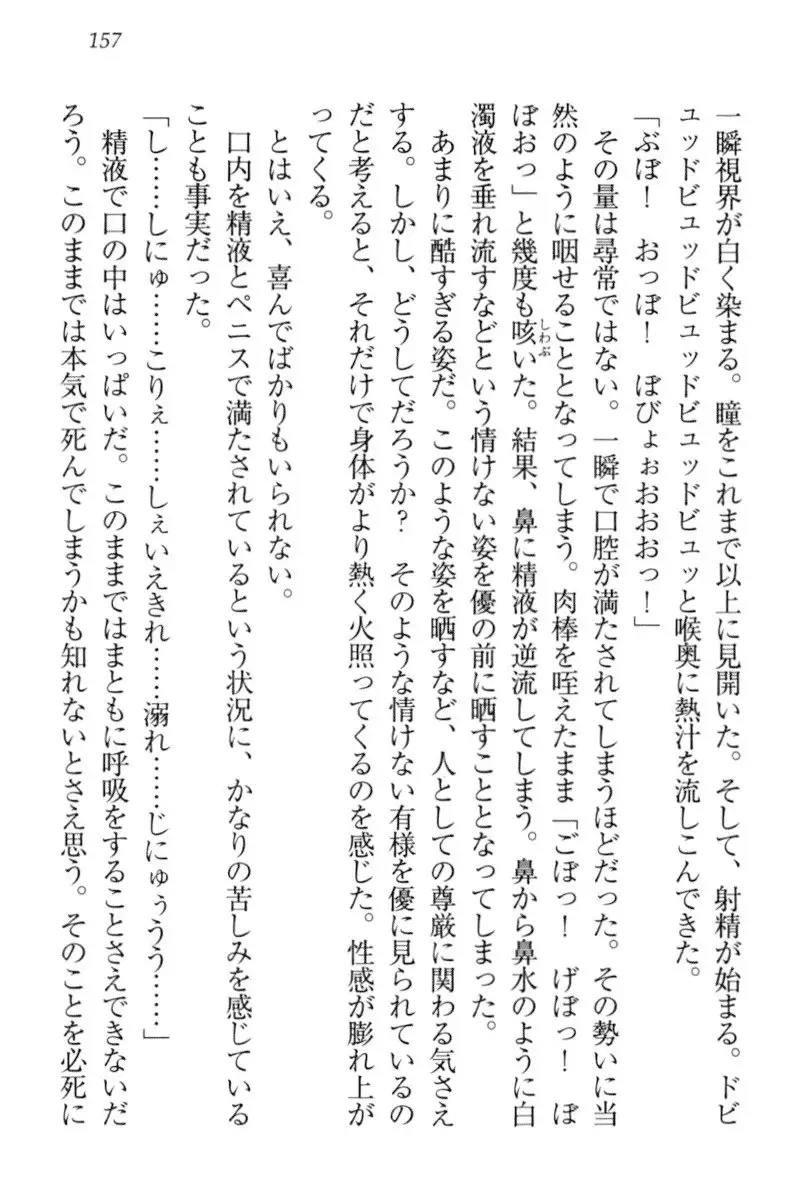 157
一瞬視界が白く染まる。瞳をこれまで以上に見開いた。そして、射精が始まる。ドビ
ュッドビュッドビュッドビュッと喉奥に熱汁を流しこんできた。
「ぶぼ！　おっぼ！　ぼびょぉおおおっ！」
　その量は尋常ではない。一瞬で口腔が満たされてしまうほどだった。その勢いに当
然のように咽せることとなってしまう。肉棒を咥えたまま「ごぼっ！　げぼっ！　ぼ
ぼおっ」と幾度も咳いた。結果、鼻に精液が逆流してしまう。鼻から鼻水のように白
しわぶ
濁液を垂れ流すなどという情けない姿を優の前に晒すこととなってしまった。
　あまりに酷すぎる姿だ。このような姿を晒すなど、人としての尊厳に関わる気さえ
する。しかし、どうしてだろうか？　そのような情けない有様を優に見られているの
だと考えると、それだけで身体がより熱く火照ってくるのを感じた。性感が膨れ上が
ってくる。
　とはいえ、喜んでばかりもいられない。
　口内を精液とペニスで満たされているという状況に、かなりの苦しみを感じている
ことも事実だった。
「し……しにゅ……こりぇ……しぇいえきれ……溺れ……じにゅぅうう……」
　精液で口の中はいっぱいだ。このままではまともに呼吸をすることさえできないだ
ろう。このままでは本気で死んでしまうかも知れないとさえ思う。そのことを必死に